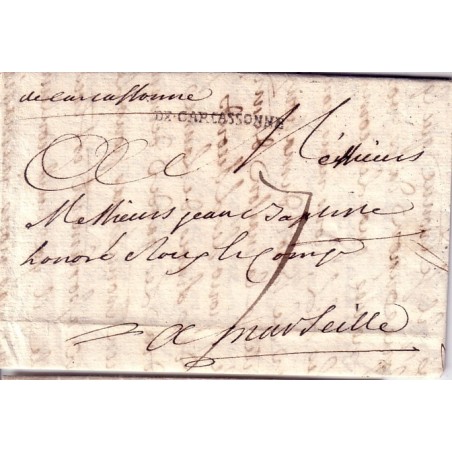 de carcassonne
DE CARCASSONNE
A Messieurs
Messieurs jean Baptiste
honoré Roux & Comp
7
a marseille